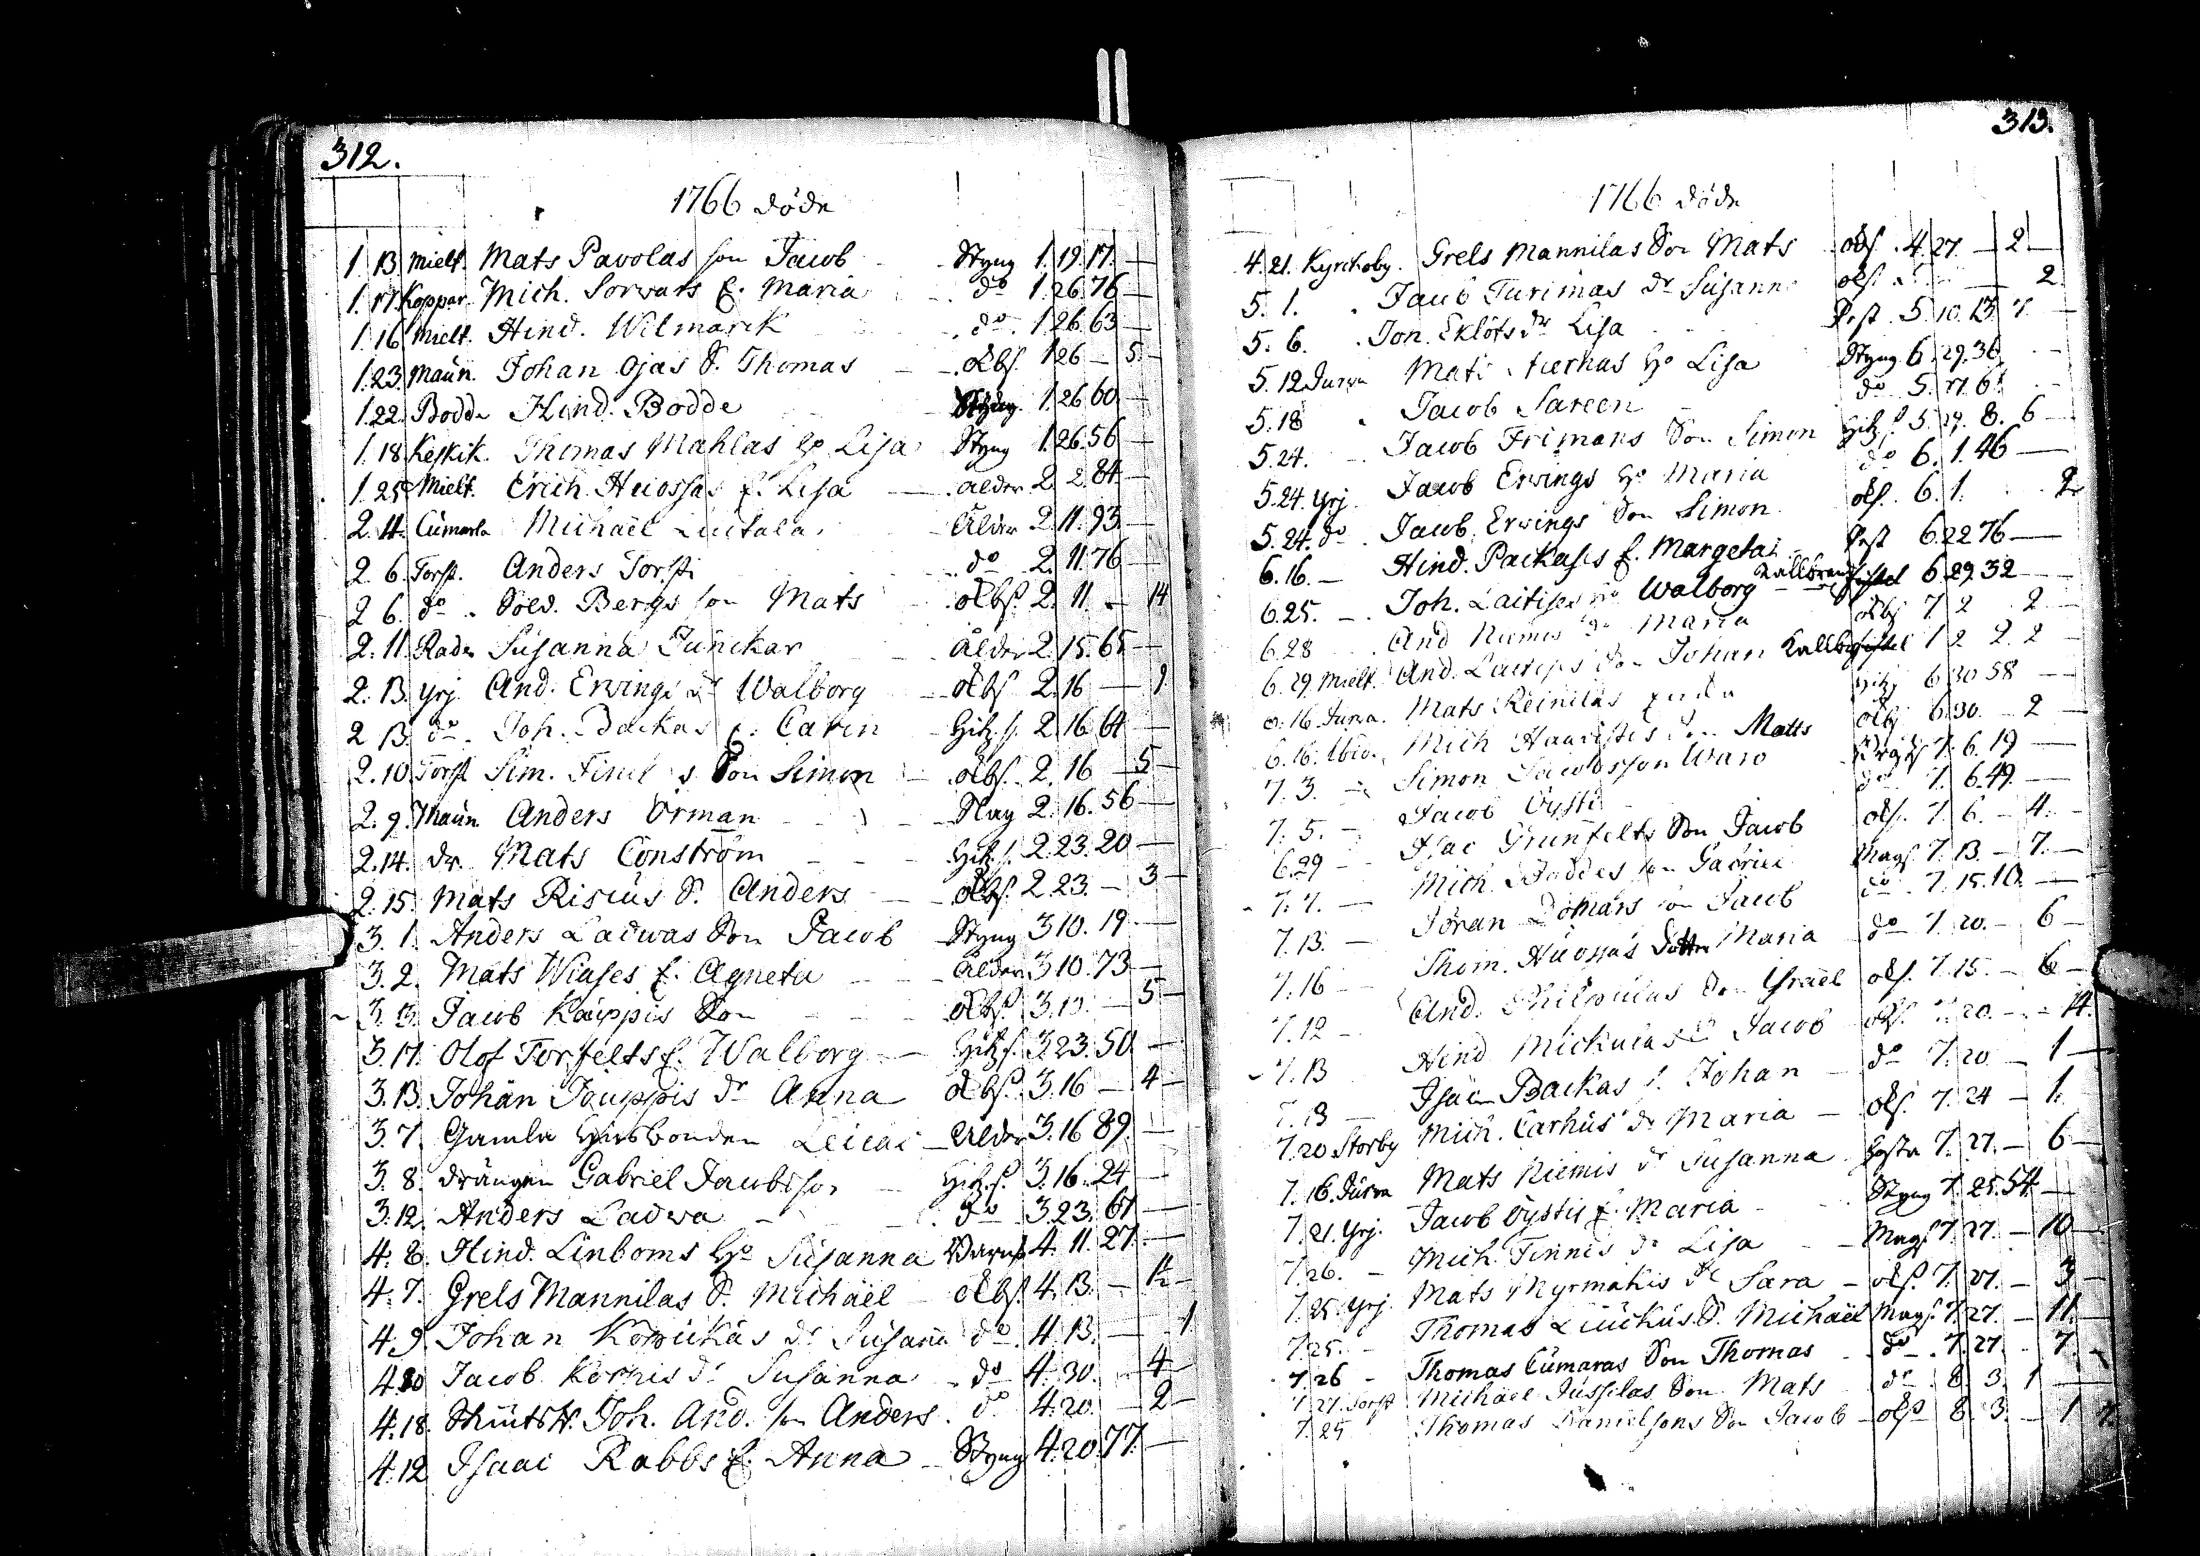 312.
1766 döde
1. 13 Mielt. Mats Pavolas son Jacob Styng 1. 19. 17. —
1. 17. Koppar. Mich. Sorvars E. Maria do 1. 26. 76 —
1. 16 Mielt. Hind. Wilmarck do 1. 26. 63 —
1. 23. Maun. Johan Ojas S. Thomas olbs. 1 26 — 5. —
1. 22. Bodde Hind. Bodde Styng. 1. 26 60. —
1. 18 Keskik. Thomas Mahlas Ho Lisa Styng 1. 26. 56 —
1. 25 Mielt. Erich. Huossas E. Lisa ålder 2. 2. 84. —
2. 4. Cumarla Michaël Luitala ålder 2. 11. 93. —
2. 6. Torst. Anders Torsti do 2. 11. 76 —
2 6. do Sold. Bergs son Mats olbs. 2. 11. — 14
2. 11. Rada Susanna Junckar Ålder 2. 15. 65 —
2. 13. Yrj. And. Ervings dr Walborg olbs. 2. 16 — 1.
2 13. do Joh. Backas E. Carin Hitz. s. 2. 16. 64 —
2. 10. Torst Sim. Son Simon olbs. 2. 16 — 5 —
2. 9. Maun. Anders Örman Slag 2. 16. 56 —
2. 14. dr. Mats Conström Hitz. s. 2. 23. 20 —
2. 15. Mats Riscus S. Anders olbs. 2. 23. — 3 —
3. 1. Anders Ladwas Son Jacob Styng 3 10. 19. —
3. 2. Mats Wiases E. Agneta Ålder 3 10. 73 —
3. 13. Jacob Kauppis Son olbs. 3. 13. — 5 —
3. 17. Olof Torfelts E. Walborg Hitz s. 3. 23. 50. —
3. 13. Johan Jouppis dr Anna olbs. 3. 16 — 4 —
3. 7. Gamla Husbonden Ålder 3. 16 89. —
3. 8. drängen Gabriel Jacobsson Hitz. s. 3. 16. 24. —
3. 12. Anders Ladwa do 3. 23. 67 —
4. 8. Hind. Linboms Ho Susanna Barns 4. 11. 27. —
4. 7. Grels Mannilas S. Michaël olbs. 4. 13. — 1½ —
4. 9. Johan dr Susanna do 4. 13. — 1.
4 20 Jacob Korpis dr Susanna do 4. 30. — 4 —
4. 18. Joh. And. son Anders do 4. 20. — 2 —
4. 12. Isaac Rabbs E. Anna Styng 4. 20. 77. —
313.
1766 döde
4. 21. Kyrckoby. Grels Mannilas Son Mats olbs. 4. 27. — 2 —
5. 1. Jacob Turimas dr Susanna ols. — 2
5. 6. Jon. Eklöfs dr Lisa Pest. 5. 10. 13. 7. —
5. 12 Jurva Mats Ho Lisa Styng 6. 29. 36
5. 18 Jacob Sareen do 5.
5. 24. Jacob Frimans Son Simon Hitz s. 5. 29. 8. 6 —
5. 24. Yrj. Jacob Ervings Ho Maria do 6. 1. 46 —
5. 24. do Jacob. Ervings Son Simon ols. 6. 1. 2
6. 16. — Hind. Packases E. Margeta Pest 6. 22 76 —
6. 25. — Joh. Laitises Ho Walborg Kallbrand 6. 29. 32 —
6. 28 And Niemis dr Maria olbs 7 2 2. —
6. 29. Mielt. And. Son Johan 2 2. 2 —
6. 16. Jurva. Mats Reinilas Hitz 6. 30 58 —
6. 16. Mich Son Matts olbs 6. 30. — 2 —
7. 3. Simon Jacobsson Waro 7. 6. 19 —
7. 5. — Jacob Öysti do 7. 6. 49. —
6. 29 — Isac Grunfelts Son Jacob ols. 7. 6. — 4. —
7. 7. — Mich. Boddes son Gabriel Mags. 7. 13. — 7. —
7. 13. — Johan son Jacob do 7. 15. 10. —
7. 16 — Thom. Huossas Dotter Maria do 7. 20. — 6 —
7. 12 — And. Son Israël ols. 7. 15. — 6 —
7. 13 Hind. S. Jacob ols. 7. 20. — 14.
7. 13 — Isac Backas S. Johan do 7. 20 — 1 —
7. 20 Storby Mich. Carhus dr Maria ols. 7. 24 — 1. —
7. 16. Jurva Mats Niemis dr Susanna Hosta 7. 27. — 6 —
7. 21. Yrj. Jacob Öystis E. Maria Styng 7. 25. 54 —
7. 26. — Mich. Finnis dr Lisa Mags 7. 27. — 10 —
7. 25. Yrj. Mats Myrmäkis dr Sara ols. 7. 27. — 3 —
7. 25. — Thomas S. Michaël Mags. 7. 27. — 11. —
7. 26 — Thomas Cumaras Son Thomas do 7. 27. — 7.
7. 27. Torst Michaël Jussilas Son Mats do 8. 3. 1 —
7. 25 Thomas Danielsons Son Jacob ols 8. 3. — 1